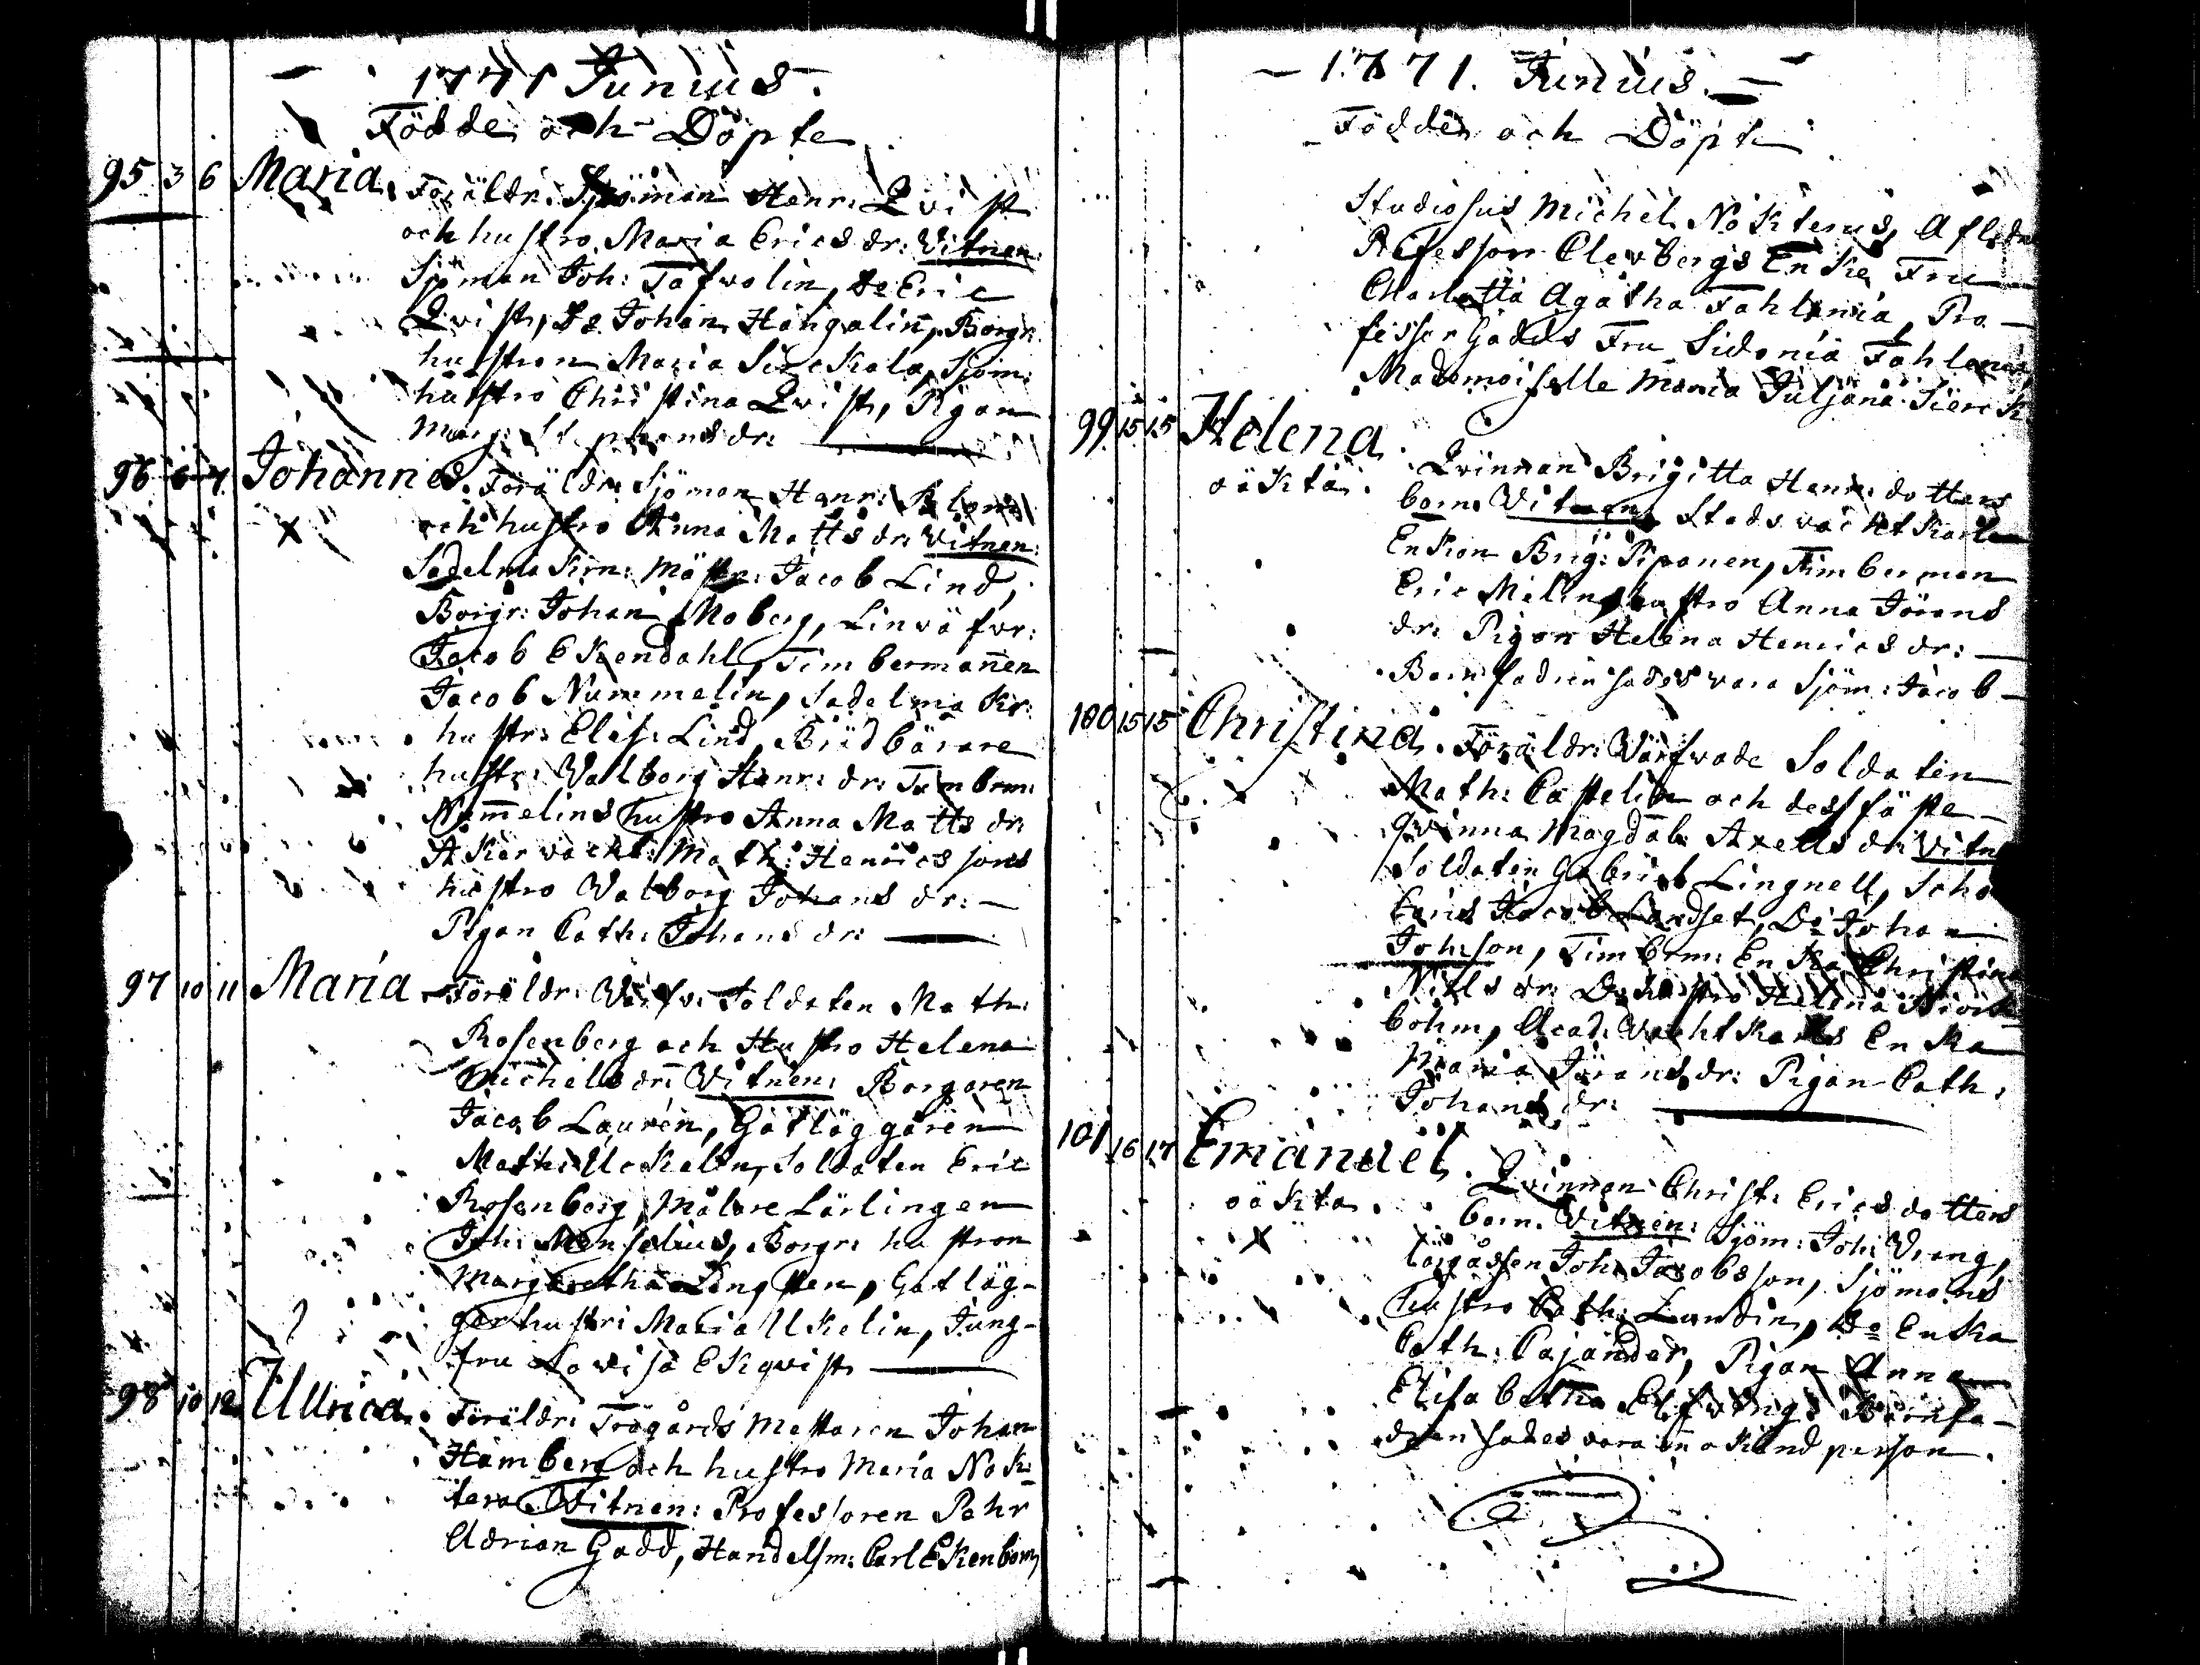 1771 Junius.
Födde och Döpte
95 3 6 Maria. Föräldr: Sjöman Henr: Qvist
och hustro Maria Erics dr: Vitnen:
Sjöman Joh: Tafwolin, Do Eric
Qvist, Do Johan Hongolin, Borgr:
hustron Maria Sirekala, Sjöm:
hustro Christina Qvist, Pigan
Marg: Stephans dr:
96 6 7 Johannes. Föräldr: Sjöman Henr: Blom
och hustro Anna Matts dr: Vitnen:
Sadelmakrn: Mäst: Jacob Lind,
Borgr: Johan Moberg, Linväfvr:
Jacob Ekendahl, Timbermanen
Jacob Nummelin, Sadelmakr:
hustr: Elis: Lind, Budbärare
hustr: Valborg Henr: dr: Timbrm:
Numelins hustro Anna Matts dr:
Åkervackt: Math: Henricssons
hustro Valborg Johans dr:
Pigan Cath: Johans dr:
97 10 11 Maria. Föräldr: Värfv: Soldaten Math:
Rosenberg och Hustro Helena
Michels dr: Vitnen: Borgaren
Jacob Laurén, Gatläggaren
Math: Uckelin, Soldaten Eric
Rosenberg, Målare Lärlingen
Joh: Menselius, Borgr: hustron
Margaretha Lingsten, Gatläg-
gar hustr: Maria Ukelin, Jung-
fru Lovisa Ekqvist
98 10 12 Ullrica. Föräldr: Trägårds Mestaren Johan
Hamberg och hustro Maria Nok-
tera Vitnen: Professoren Pehr
Adrian Gadd, Handelsm: Carl Ekenbom,
1771. Junius.
Födde och Döpte
Studiosus Michel Nokterus, Afledne
Professor Clewbergs Enke Fru
Charlotta Agatha Fahlenia, Pro-
fessor Gadds Fru Sidonia Fahlenia
Mademoiselle Maria Juljana Sierck
99 15 15 Helena.
oäkta. Qvinnan Brigitta Henr: dotters
barn. Vitnen: Stads vacktkarls
Enkon Brig: Piponen, Timberman
Eric Melins hustro Anna Jörans
dr: Pigan Helena Henrics dr:
Barnfadren sades vara Sjöm: Jacob
100 15 15 Christina. Föräldr: Värfvade Soldaten
Math: Castelin och dess fäste-
qvinna Magdal: Axells dr: Vitn
Soldaten Gabriel Lingnell, Scho
laris Jacob Landset, Do Johan
Johsson, Timbrm: Enka Christina
Nills dr: Do hustro Helena Biörk
bohm, Acad: Vachtkarls Enka
Maria Jörans dr: Pigan Cath:
Johans dr:
101 16 17 Emanuel.
oäkta. Qvinnan Christ: Erics dotters
barn. Vitnen: Sjöm: Joh: Vrang,
Lärgåssen Joh: Jacobsson, Sjömans
hustro Cath: Lundin, Do Enka
Cath: Cajander, Pigan Anna
Elisabetha Elfving. Barnfa-
dren sades vara en okänd person.